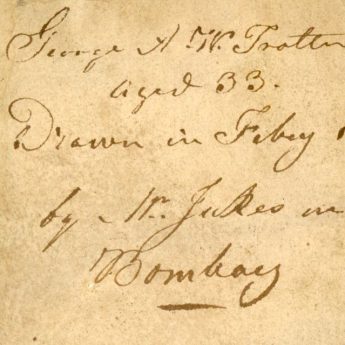 George A W. Trotter
aged 33.
Drawn in Feby
by Mr. Jukes in
Bombay